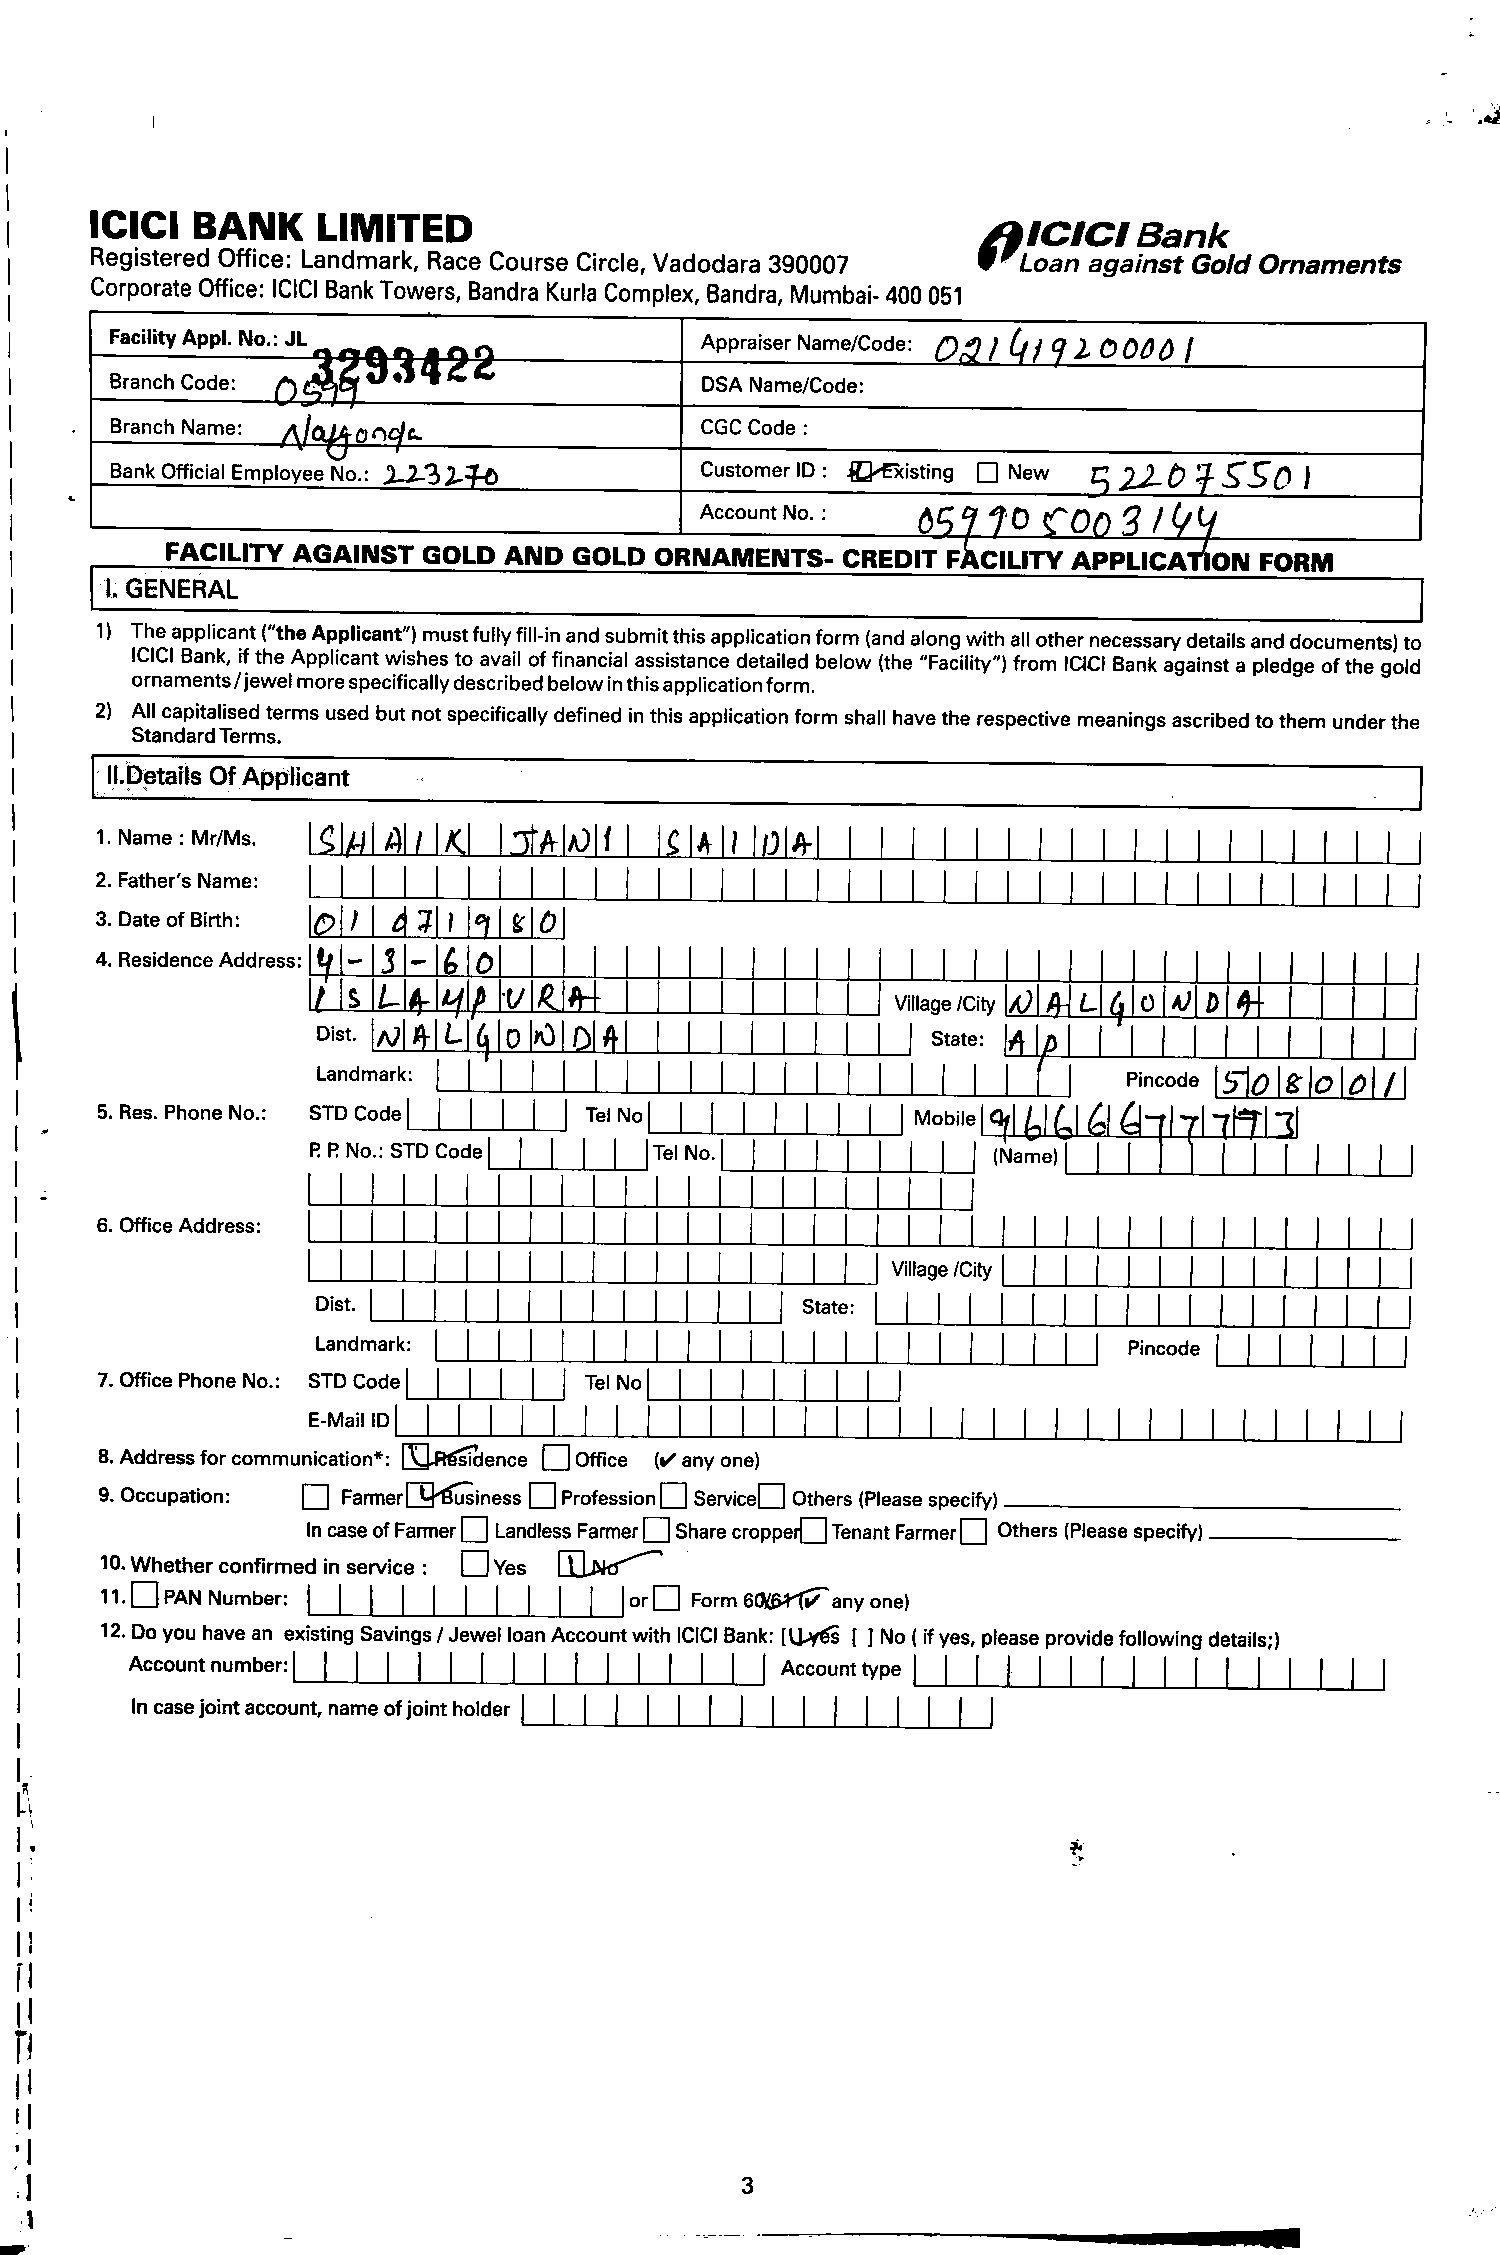 ICICI BANK LIMITED
Registered Office: Landmark, Race Course Circle, Vadodara 390007
Corporate Office: ICICI Bank Towers, Bandra Kurla Complex, Bandra, Mumbai- 400 051
ICICI Bank
Loan against Gold Ornaments
Facility Appl. No.: JL 3293422
Appraiser Name/Code: 021419200001
Branch Code: 0599
DSA Name/Code:
Branch Name: Nalgonda
CGC Code :
Bank Official Employee No.: 223270
Customer ID : Existing New 522075501
Account No. : 059905003144
FACILITY AGAINST GOLD AND GOLD ORNAMENTS- CREDIT FACILITY APPLICATION FORM
I. GENERAL
1) The applicant ("the Applicant") must fully fill-in and submit this application form (and along with all other necessary details and documents) to
ICICI Bank, if the Applicant wishes to avail of financial assistance detailed below (the "Facility") from ICICI Bank against a pledge of the gold
ornaments/jewel more specifically described below in this application form.
2) All capitalised terms used but not specifically defined in this application form shall have the respective meanings ascribed to them under the
Standard Terms.
II.Details Of Applicant
1. Name : Mr/Ms. SHAIK JANI SAIDA
2. Father's Name:
3. Date of Birth: 01071980
4. Residence Address: 4-3-60
ISLAMPURA Village /City NALGONDA
Dist. NALGONDA State: AP
Landmark: Pincode 508001
5. Res. Phone No.: STD Code Tel No Mobile 9666677773
P. P. No.: STD Code Tel No. (Name)
6. Office Address:
Village /City
Dist. State:
Landmark: Pincode
7. Office Phone No.: STD Code Tel No
E-Mail ID
8. Address for communication*: Residence Office (✔ any one)
9. Occupation: Farmer Business Profession Service Others (Please specify)
In case of Farmer Landless Farmer Share cropper Tenant Farmer Others (Please specify)
10. Whether confirmed in service : Yes No
11. PAN Number: or Form 60/61 (✔ any one)
12. Do you have an existing Savings / Jewel loan Account with ICICI Bank: [ ] yes [ ] No ( if yes, please provide following details;)
Account number: Account type
In case joint account, name of joint holder
3